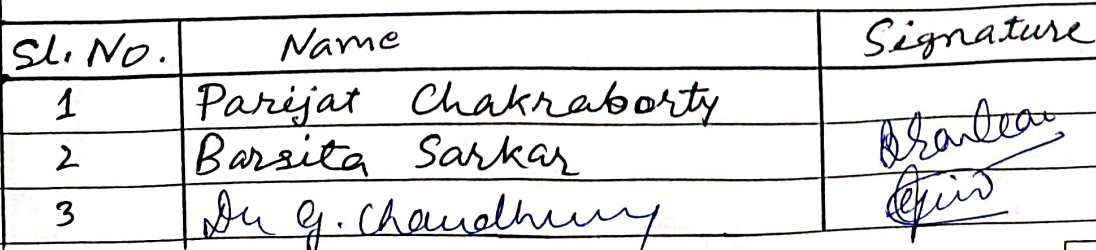 Sl. No. Name Signature
1 Parijat Chakraborty
2 Barsita Sarkar
3 Dr G. Chaudhury